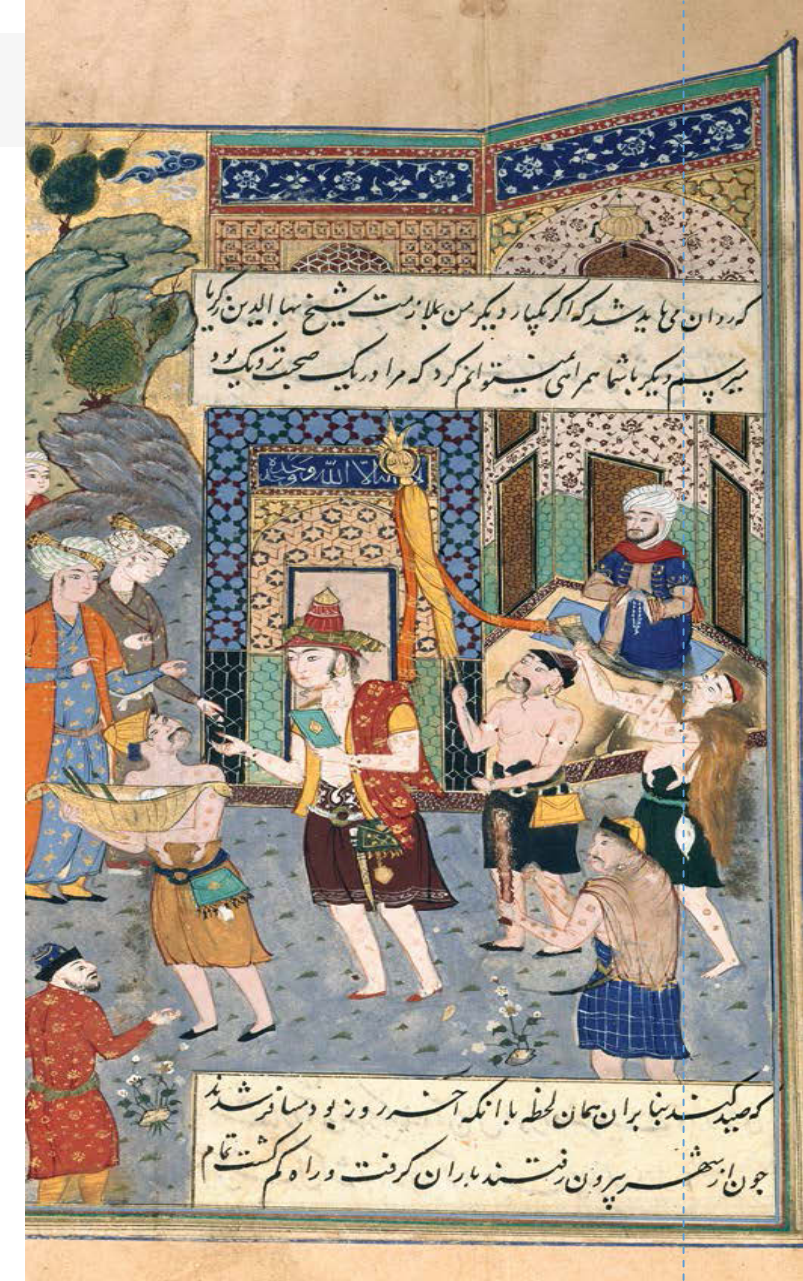 که ردان می باید شد که اکر یکبار دیکر من بملازمت شیخ بها الدین زکریا
میرسم دیکر باشما همراهی نمیتوانم کرد که مرا در یک صحبت نزدیک بود
الا الله وحده
که صید کند بنا بران همان لحظه با انکه اخر روز بود مسافر شدند
چون از شهر بیرون رفتند باران کرفت و راه کم کشت تمام